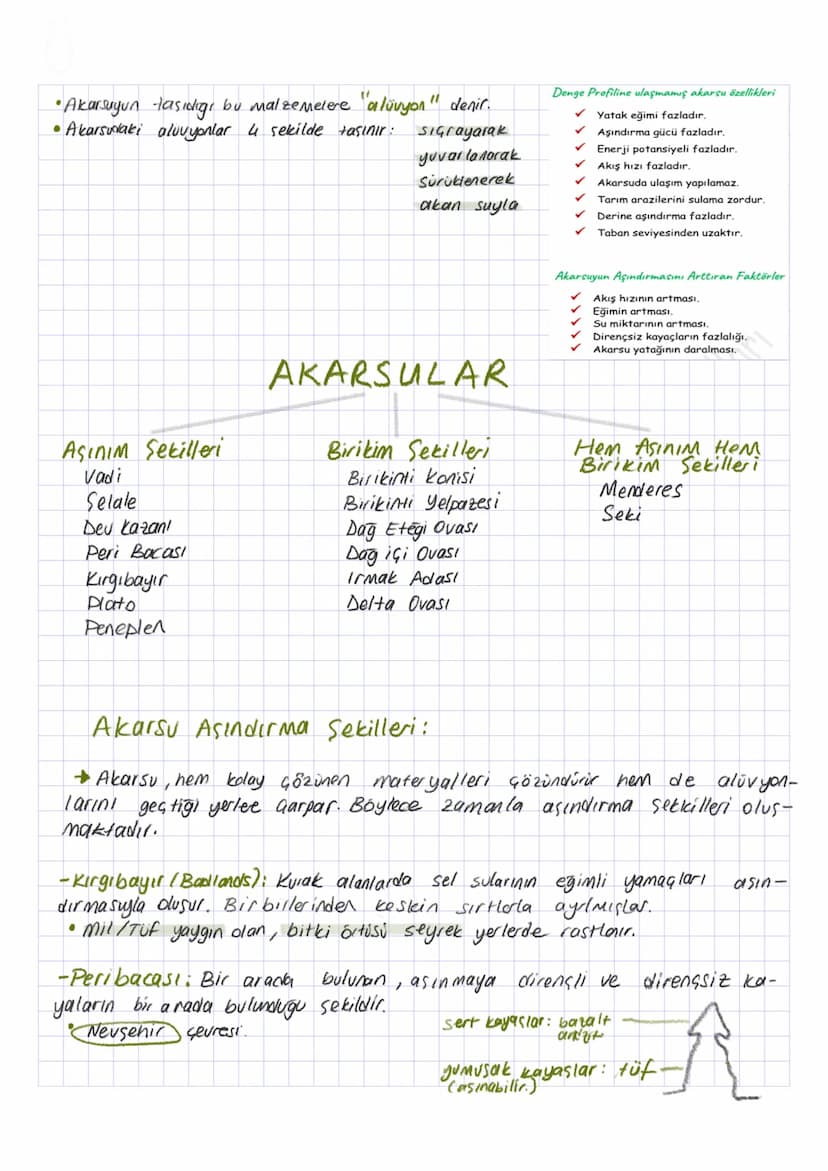 • Akarsuyun taşıdığı bu malzemelere "alüvyon" denir.
• Akarsudaki alüvyonlar 4 şekilde taşınır: sıçrayarak
yuvarlanarak
sürüklenerek
akan suyla
Denge Profiline ulaşmamış akarsu özellikleri
✓ Yatak eğimi fazladır.
✓ Aşındırma gücü fazladır.
✓ Enerji potansiyeli fazladır.
✓ Akış hızı fazladır.
✓ Akarsuda ulaşım yapılamaz.
✓ Tarım arazilerini sulama zordur.
✓ Derine aşındırma fazladır.
✓ Taban seviyesinden uzaktır.
Akarsuyun Aşındırmasını Arttıran Faktörler
✓ Akış hızının artması.
✓ Eğimin artması.
✓ Su miktarının artması.
✓ Dirençsiz kayaçların fazlalığı.
✓ Akarsu yatağının daralması.
AKARSULAR
Aşınım Şekilleri
Vadi
Şelale
Dev Kazanı
Peri Bacası
Kırgıbayır
Plato
Peneplen
Birikim Şekilleri
Birikinti Konisi
Birikinti Yelpazesi
Dağ Eteği Ovası
Dağ içi Ovası
Irmak Adası
Delta Ovası
Hem Aşınım Hem
Birikim Şekilleri
Menderes
Seki
Akarsu Aşındırma Şekilleri:
→ Akarsu, hem kolay çözünen materyalleri çözündürür hem de alüvyon-
larını geçtiği yerlere çarpar. Böylece zamanla aşındırma şetkilleri oluş-
maktadır.
-Kırgıbayır (Badlands): Kurak alanlarda sel sularının eğimli yamaçları aşın-
dırmasıyla oluşur. Birbirlerinden keskin sırtlarla ayrılmışlar.
• Mil/Tüf yaygın olan, bitki örtüsü seyrek yerlerde rastlanır.
-Peribacası: Bir arada bulunan, aşınmaya dirençli ve dirençsiz ka-
yaların bir arada bulunduğu şekildir.
• Nevşehir çevresi.
sert kayaçlar: bazalt
andezit
yumuşak kayaçlar: tüf
(aşınabilir.)